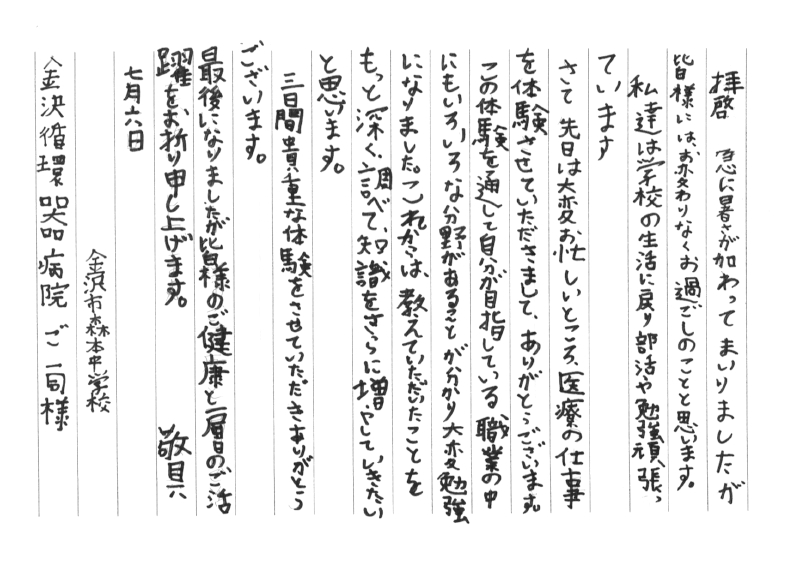 拝啓 急に暑さが加わってまいりましたが
皆様には、お変わりなくお過ごしのことと思います。
私達は学校の生活に戻り部活や勉強頑張っ
ています
さて先日は大変お忙しいところ、医療の仕事
を体験させていただきまして、ありがとうございます。
この体験を通して自分が目指している職業の中
にもいろいろな分野があることが分かり大変勉強
になりました。これからは、教えていただいたことを
もっと深く調べて、知識をさらに増やしていきたい
と思います。
三日間貴重な体験をさせていただきありがとう
ございます。
最後になりましたが皆様のご健康と一層のご活
躍をお祈り申し上げます。 敬具
七月六日
金沢市森本中学校
金沢循環器病院ご一同様